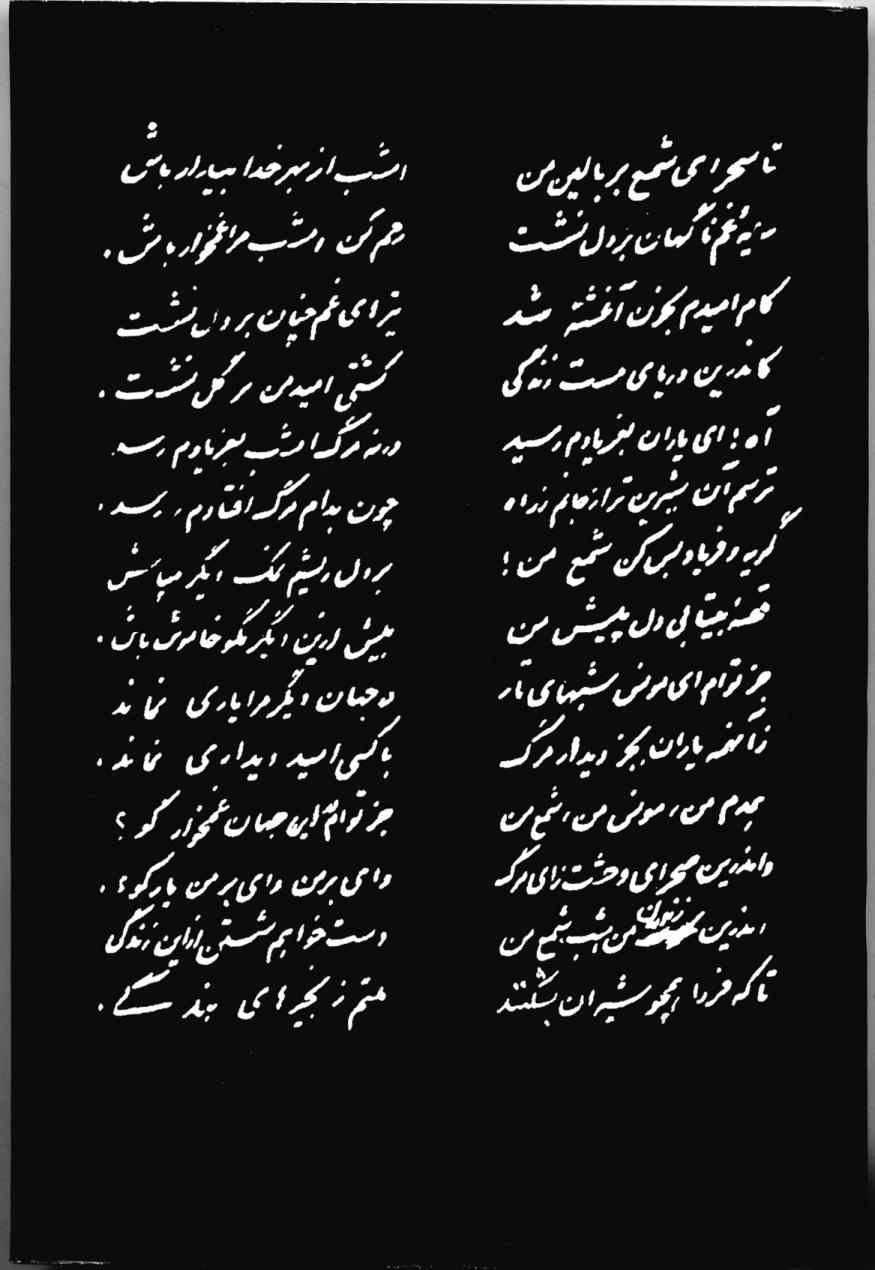 تا سحر ای شمع بر بالین من
امشب از بهر خدا بیدار باش
سایهٔ غم ناگهان بر دل نشست
رحم کن امشب مرا غمخوار باش.
کام امیدم بخون آغشته شد
تیرهای غم چنان بر دل نشست
کاندرین دریای مست زندگی
کشتی امید من بر گل نشست.
آه! ای یاران بفریادم رسید
ورنه مرگ امشب بفریادم رسد
ترسم آن شیرین تر از جانم ز راه
چون بدام مرگ افتادم، رسد.
گریه و فریاد بس کن شمع من!
بر دل ریشم نمک دیگر مپاش
قصهٔ بیتابی دل پیش من
بیش ازین دیگر مگو خاموش باش.
جز توام ای مونس شبهای تار
در جهان دیگر مرا یاری نماند
زآنهمه یاران بجز دیدار مرگ
با کسی امید دیداری نماند.
همدم من، مونس من، شمع من
جز توام در این جهان غمخوار کو؟
واندرین صحرای وحشت زای مرگ
وای بر من وای بر من یار کو؟.
اندرین زندان من امشب شمع من
دست خواهم شستن از این زندگی
تا که فردا همچو شیران بشکنند
ملتم زنجیرهای بندگی.